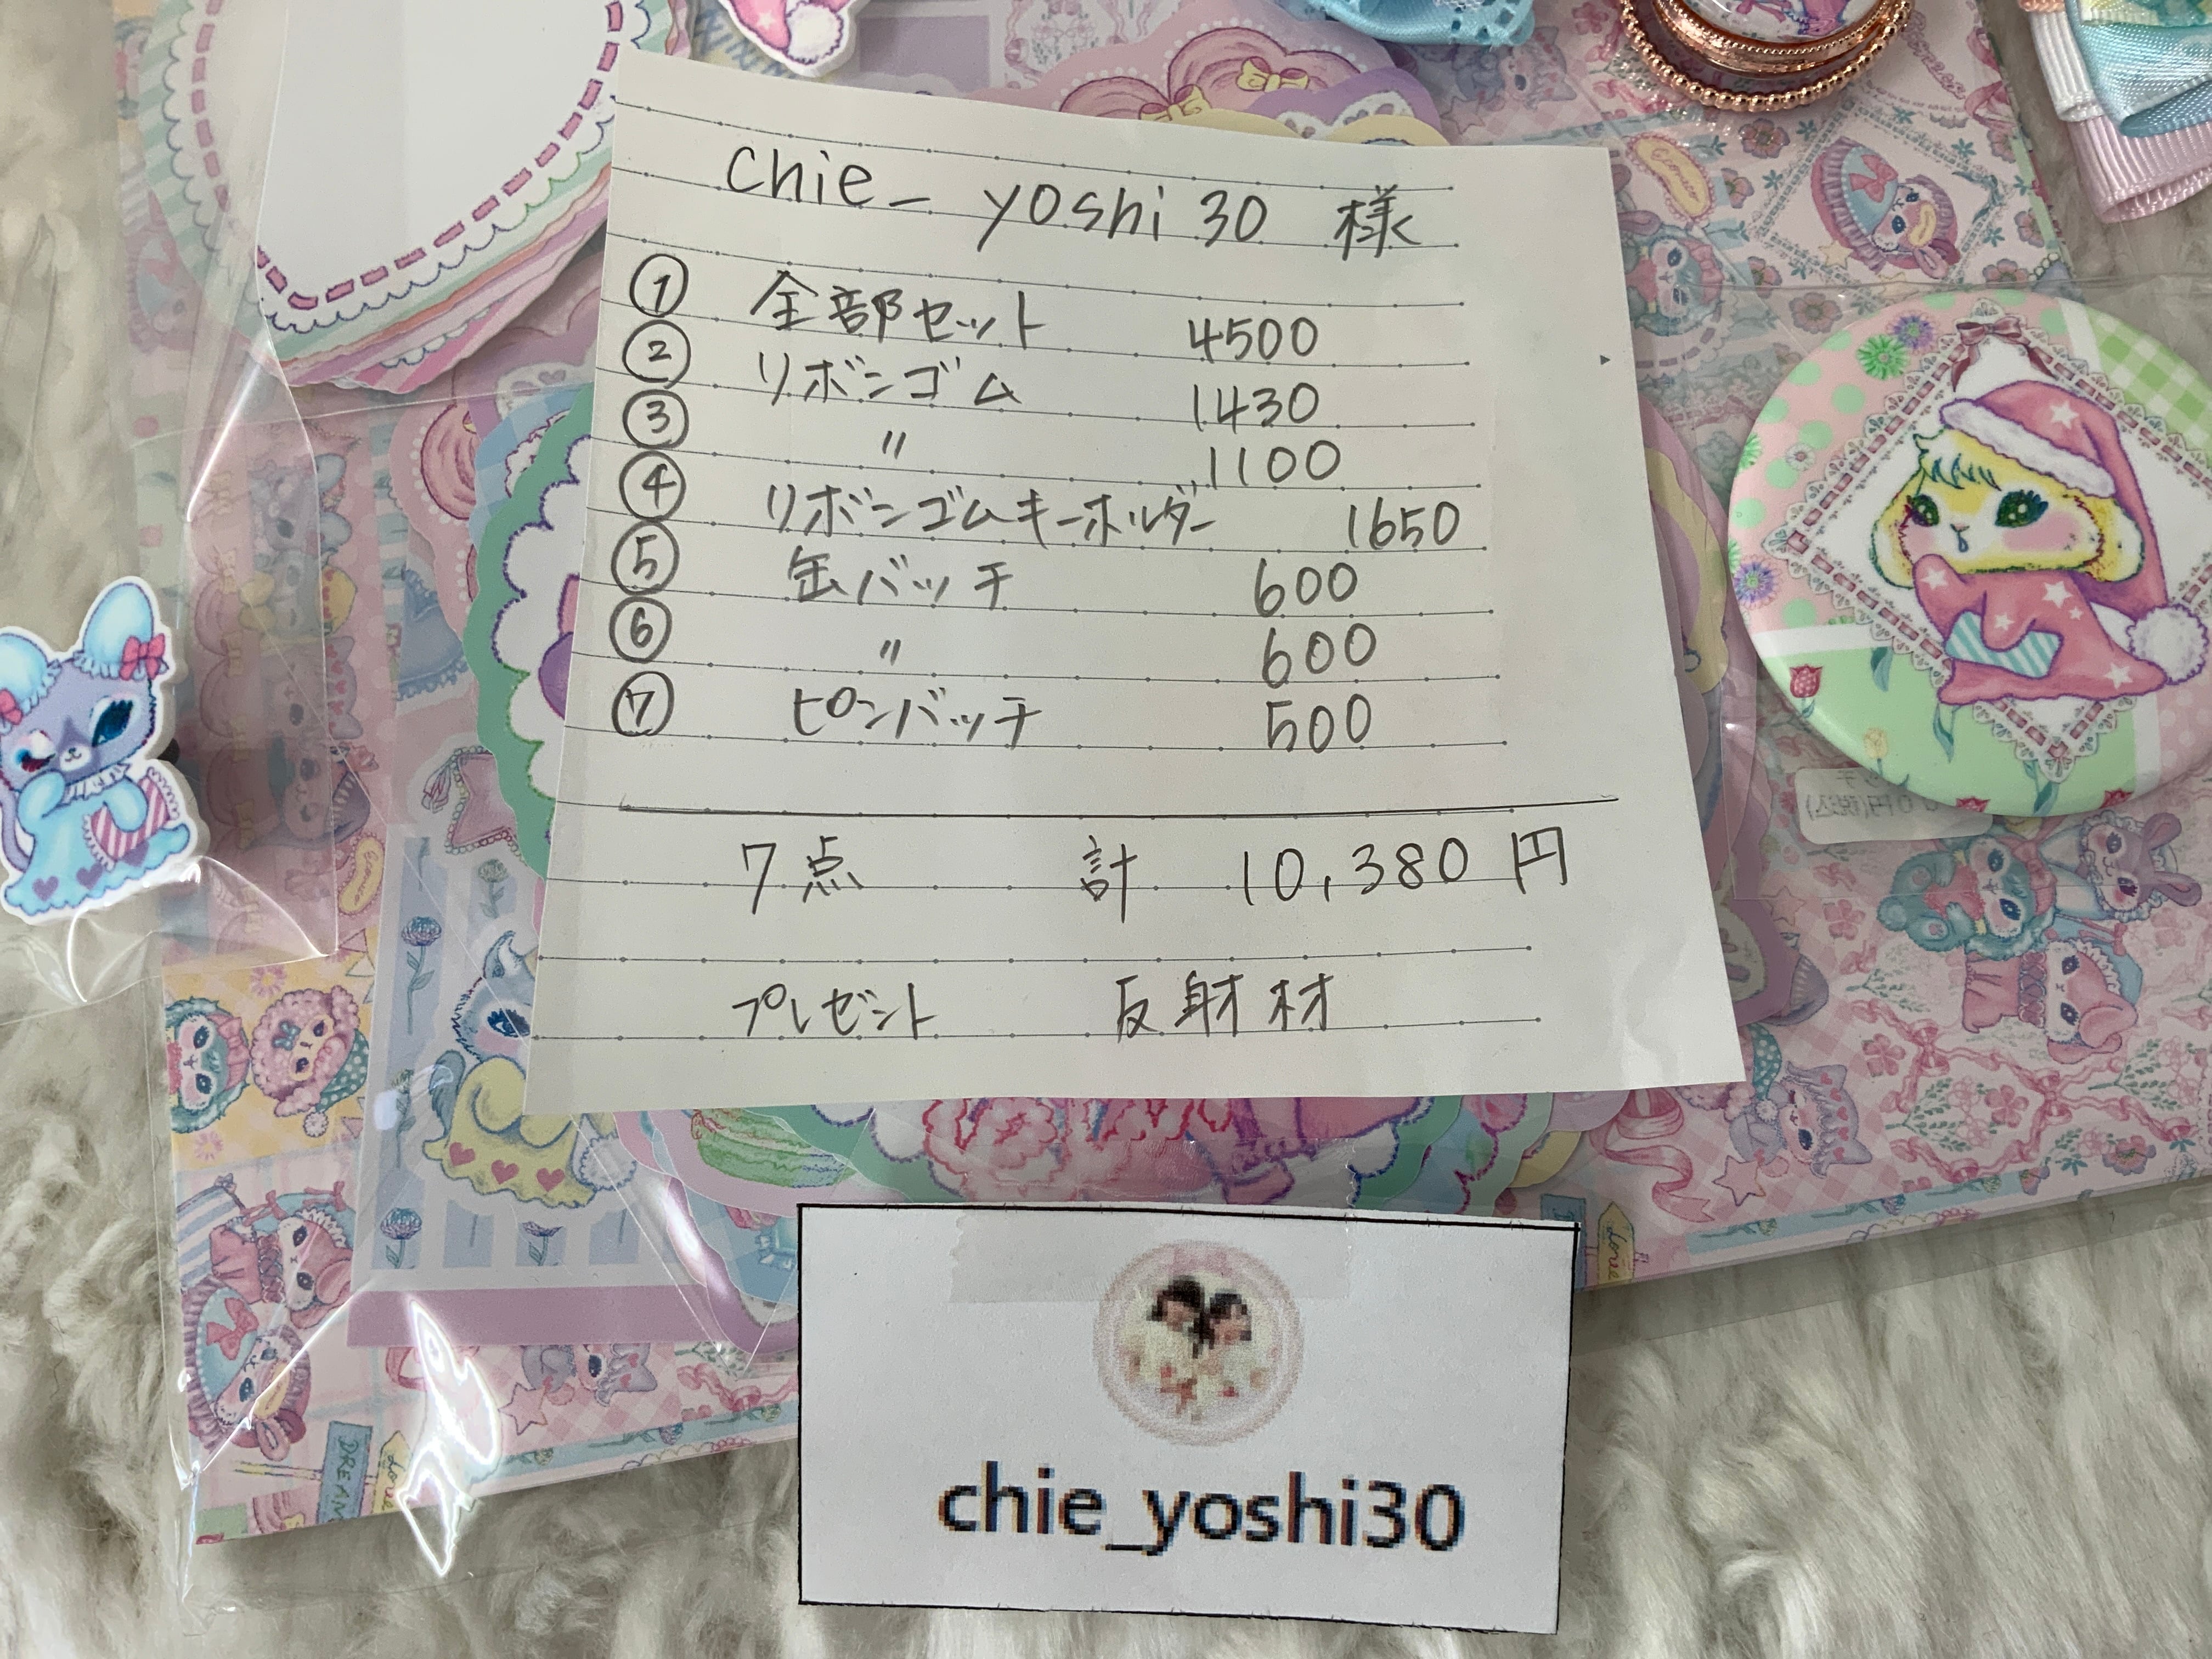 chie_ yoshi30 様
① 全部セット 4500
② リボンゴム 1430
③ 〃 1100
④ リボンゴムキーホルダー 1650
⑤ 缶バッチ 600
⑥ 〃 600
⑦ ピンバッチ 500
7点 計 10,380円
プレゼント 反射材
chie_yoshi30
DREAM